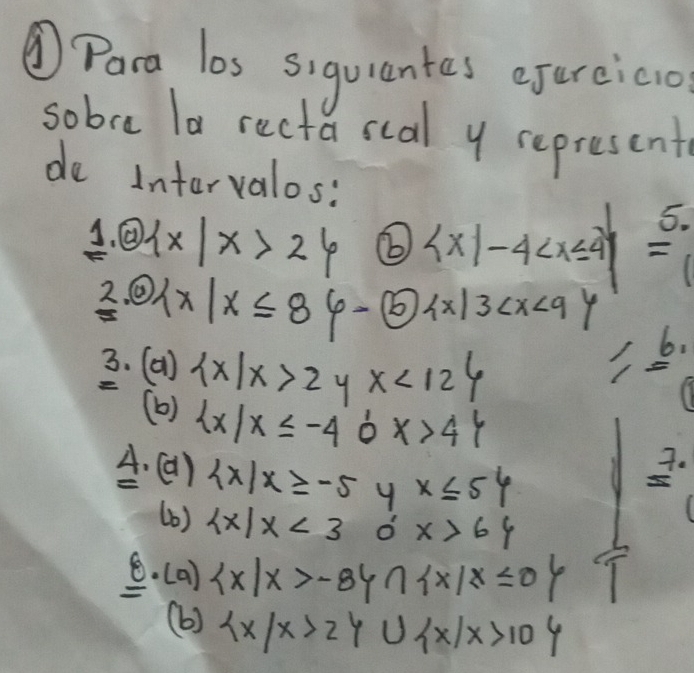 ① Para los siguientes ejercicios
sobre la recta real y represent
de Intervalos:
1. ⓐ {x | x > 2} ⓑ {x | -4 < x ≤ 4}
5.
2. ⓐ {x | x ≤ 8} - ⓑ {x | 3 < x < 9}
6.
3. (a) {x | x > 2 y x < 12}
(b) {x | x ≤ -4 ó x > 4}
4. (a) {x | x ≥ -5 y x ≤ 5}
7.
(b) {x | x < 3 ó x > 6}
8. (a) {x | x > -8} ∩ {x | x ≤ 0}
(b) {x | x > 2} ∪ {x | x > 10}